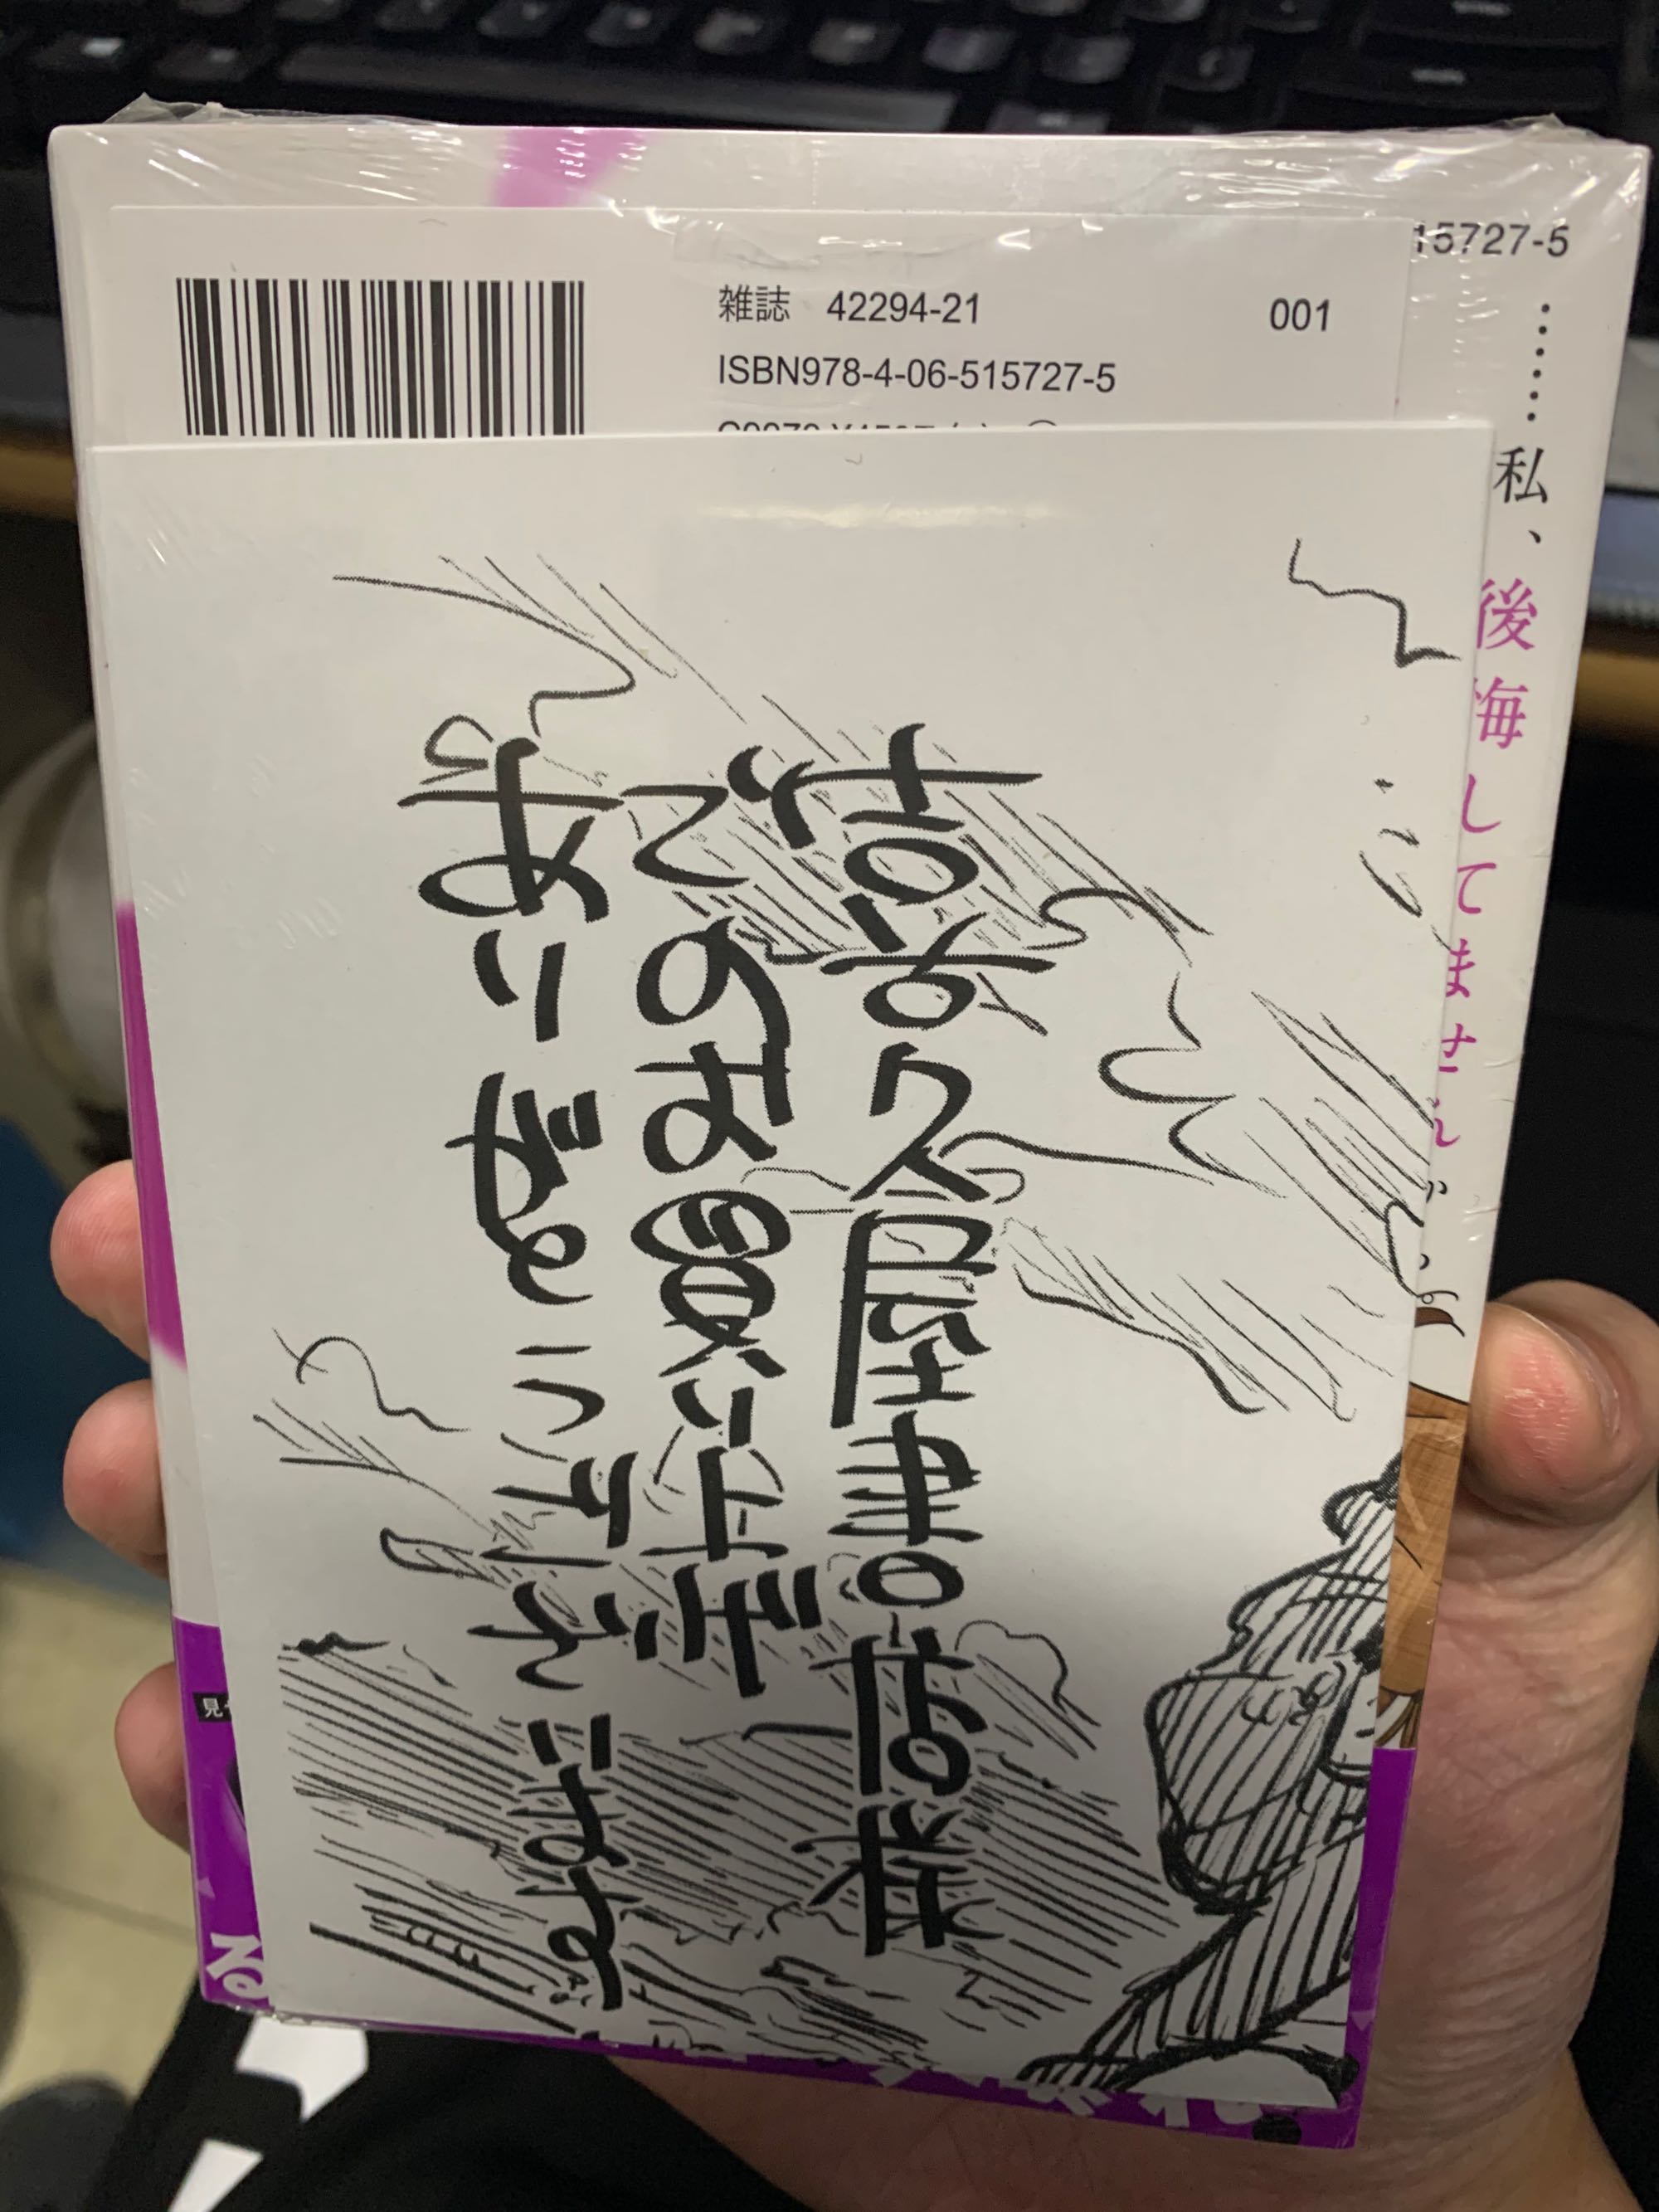 15727-5
雑誌 42294-21 001
ISBN978-4-06-515727-5
……私、後悔してません
喜久屋書店様
でのお買い上げ
ありがとうございます